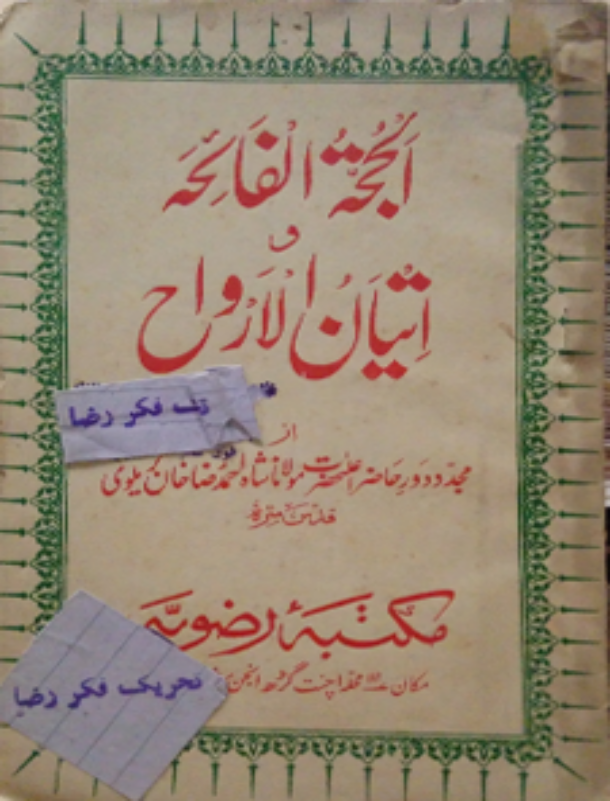 اَلْحُجَّةُ الْفَائِحَہ
و
اِتْیَانُ الْاَرْوَاح
تف فکر رضا
از
مجدد دورِ حاضر اعلٰحضرت مولانا شاہ احمد رضا خاں بریلوی
قدس سرہٗ
مکتبۂ رضویہ
مکان محلہ اچنت گڑھ انجن
تحریک فکر رضا